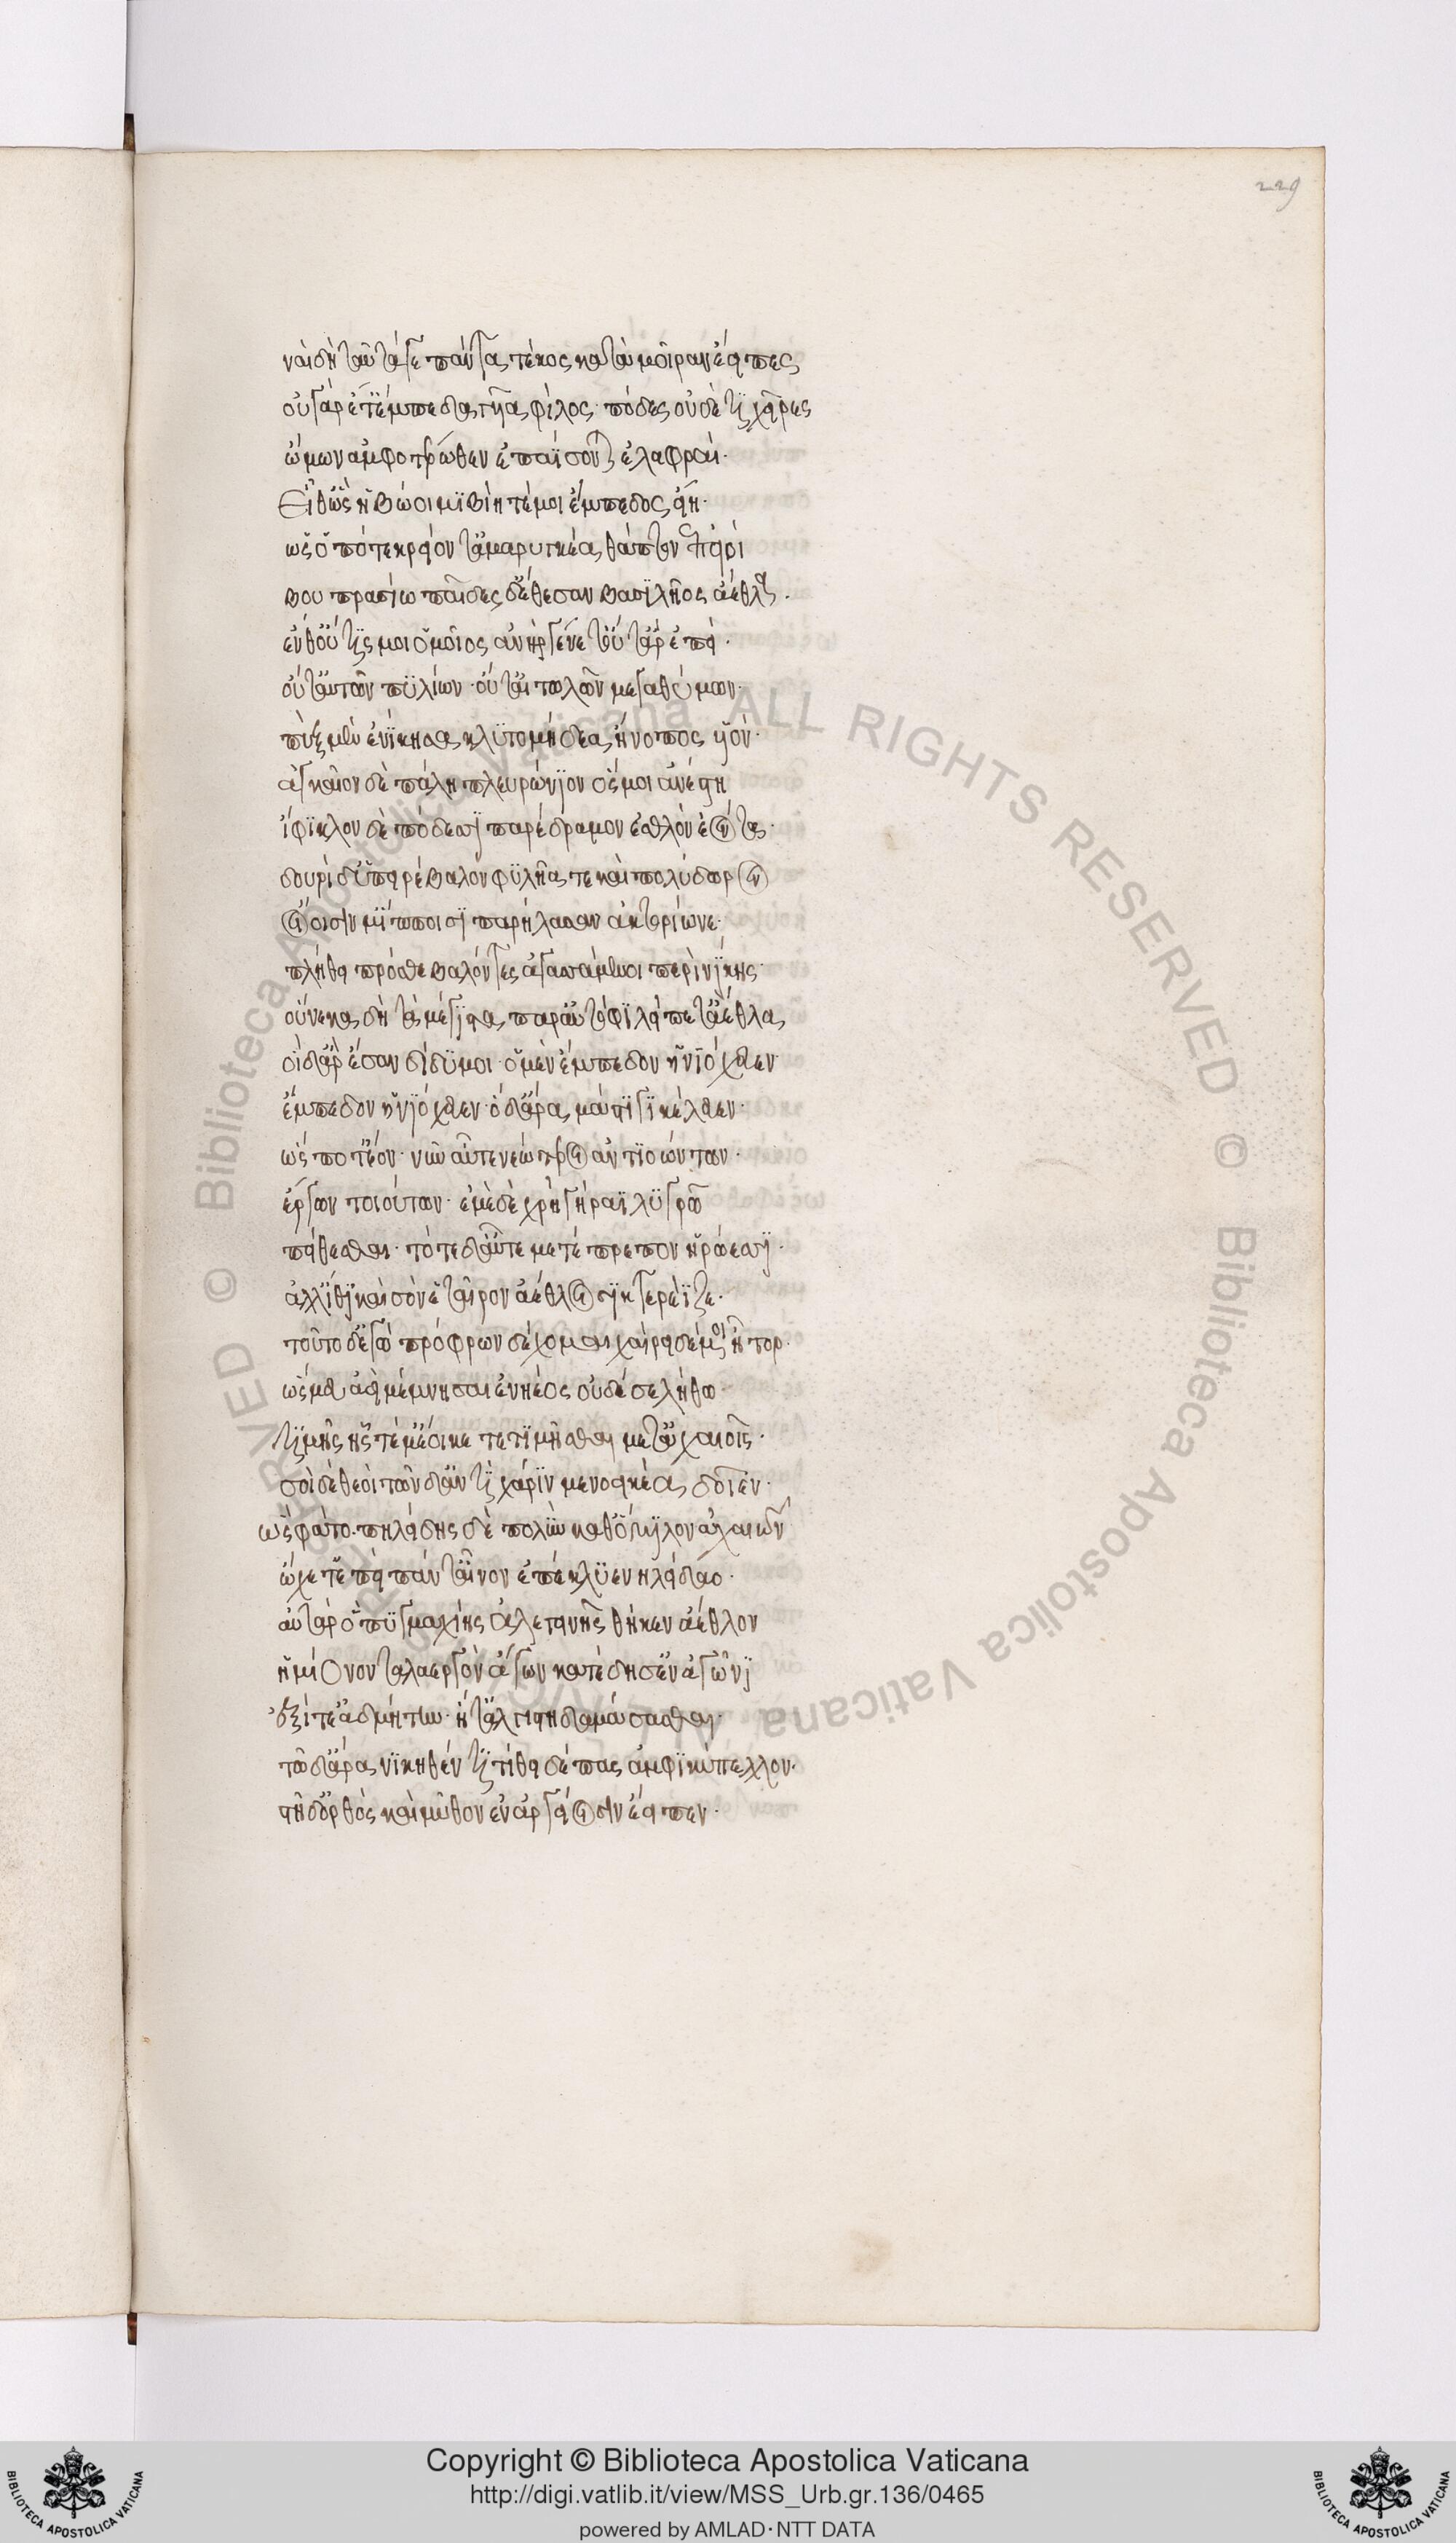 229
ναὶ δὴ ταῦτά γε πάντα τέκος κατὰ μοῖραν ἔειπες
οὐ γὰρ ἔτ' ἔμπεδα γυῖα φίλος πόδες οὐδέ τι χεῖρες
ὤμων ἀμφοτέρωθεν ἐπαΐσσονται ἐλαφραί·
Εἴθ' ὣς ἡβώοιμι βίη τέ μοι ἔμπεδος εἴη·
ὡς ὁπότε κρείοντ' ἀμαρυγκέα θάπτον ἐπειοὶ
βουπρασίω παῖδες δ' ἔθεσαν βασιλῆος ἄεθλα·
ἔνθ' οὔτις μοι ὁμοῖος ἀνὴρ γένετ' οὔτ' ἄρ ἐπειῶν·
οὔτ' αὐτῶν πυλίων· οὔτ' αἰτωλῶν μεγαθύμων·
πὺξ μὲν ἐνίκησα κλυτομήδεα ἤνοπος υἱόν·
ἀγκαῖον δὲ πάλη πλευρώνιον ὅς μοι ἀνέστη
ἴφικλον δὲ πόδεσσι παρέδραμον ἐσθλὸν ἐόντα·
δουρὶ δ' ὑπειρέβαλον φυλῆα τε καὶ πολύδωρον
οἴοισίν μ' ἵπποισι παρήλασαν ἀκτορίωνε·
πλήθει πρόσθε βαλόντες ἀγασσάμενοι περὶ νίκης·
οὕνεκα δὴ τὰ μέγιστα παρ' αὐτόφι λείπετ' ἄεθλα
οἱ δ' ἄρ ἔσαν δίδυμοι· ὁ μὲν ἔμπεδον ἡνιόχευεν
ἔμπεδον ἡνιόχευεν· ὁ δ' ἄρα μάστιγι κέλευεν·
ὥς ποτ' ἔον· νῦν αὖτε νεώτεροι ἀντιοώντων·
ἔργων τοιούτων· ἐμὲ δὲ χρὴ γήραϊ λυγρῶ
πείθεσθαι· τότε δ' αὖτε μετέπρεπον ἡρώεσσι·
ἀλλ' ἴθι καὶ σὸν ἑταῖρον ἀέθλοισι κτερέϊζε·
τοῦτο δ' ἐγὼ πρόφρων δέχομαι χαίρει δέ μοι ἦτορ·
ὥς μευ ἀεὶ μέμνησαι ἐνηέος οὐδέ σε λήθω·
τιμῆς ἧς τέ μ' ἔοικε τετιμῆσθαι μετ' ἀχαιοῖς·
σοὶ δὲ θεοὶ τῶνδ' ἀντὶ χάριν μενοεικέα δοῖεν·
ὣς φάτο· πηλείδης δὲ πολὺν καθ' ὅμιλον ἀχαιῶν
ᾤχετ' ἐπεὶ πάντ' αἶνον ἐπέκλυεν ηλείδαο·
αὐτὰρ ὁ πυγμαχίης ἀλεγεινῆς θῆκεν ἄεθλον
ἡμίονον ταλαεργὸν ἄγων κατέδησ' ἐν ἀγῶνι
ἑξέτε' ἀδμήτην· ἥτ' ἀλγίστη δαμάσασθαι·
τῶ δ' ἄρα νικηθέντι τίθει δέπας ἀμφικύπελλον·
στῆ δ' ὀρθὸς καὶ μῦθον ἐν ἀργείοισιν ἔειπεν·
Copyright © Biblioteca Apostolica Vaticana
http://digi.vatlib.it/view/MSS_Urb.gr.136/0465
powered by AMLAD·NTT DATA